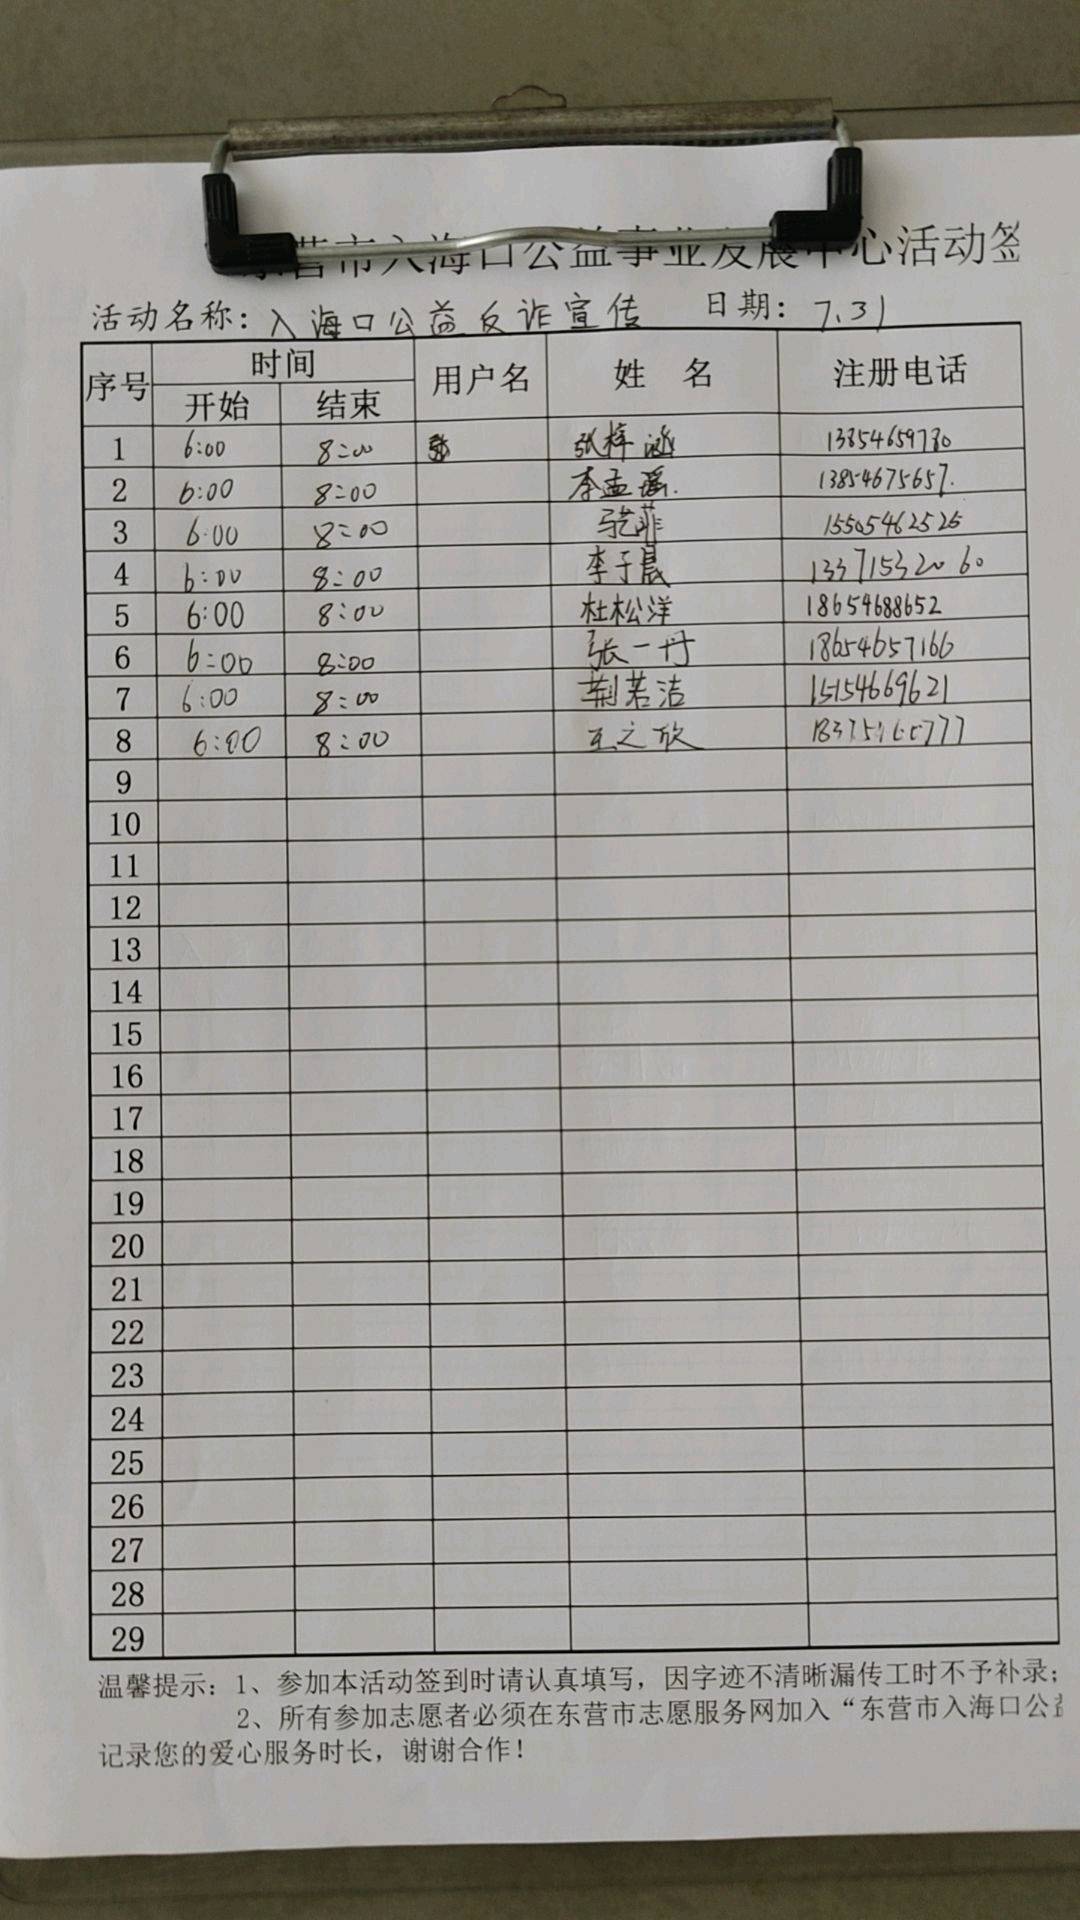 东营市入海口公益事业发展中心活动签
活动名称：入海口公益反诈宣传 日期：7.31
序号 时间 用户名 姓 名 注册电话
开始 结束
1 6:00 8:00 张梓涵 13854659780
2 6:00 8:00 李孟瑶. 13854675657.
3 6:00 8:00 15505462525
4 6:00 8:00 李于晨 13371532060
5 6:00 8:00 杜松洋 18654688652
6 6:00 8:00 张一丹 18654657166
7 6:00 8:00 荆若洁 15154669621
8 6:00 8:00 王之欣
9
10
11
12
13
14
15
16
17
18
19
20
21
22
23
24
25
26
27
28
29
温馨提示：1、参加本活动签到时请认真填写，因字迹不清晰漏传工时不予补录；
2、所有参加志愿者必须在东营市志愿服务网加入“东营市入海口公益
记录您的爱心服务时长，谢谢合作！